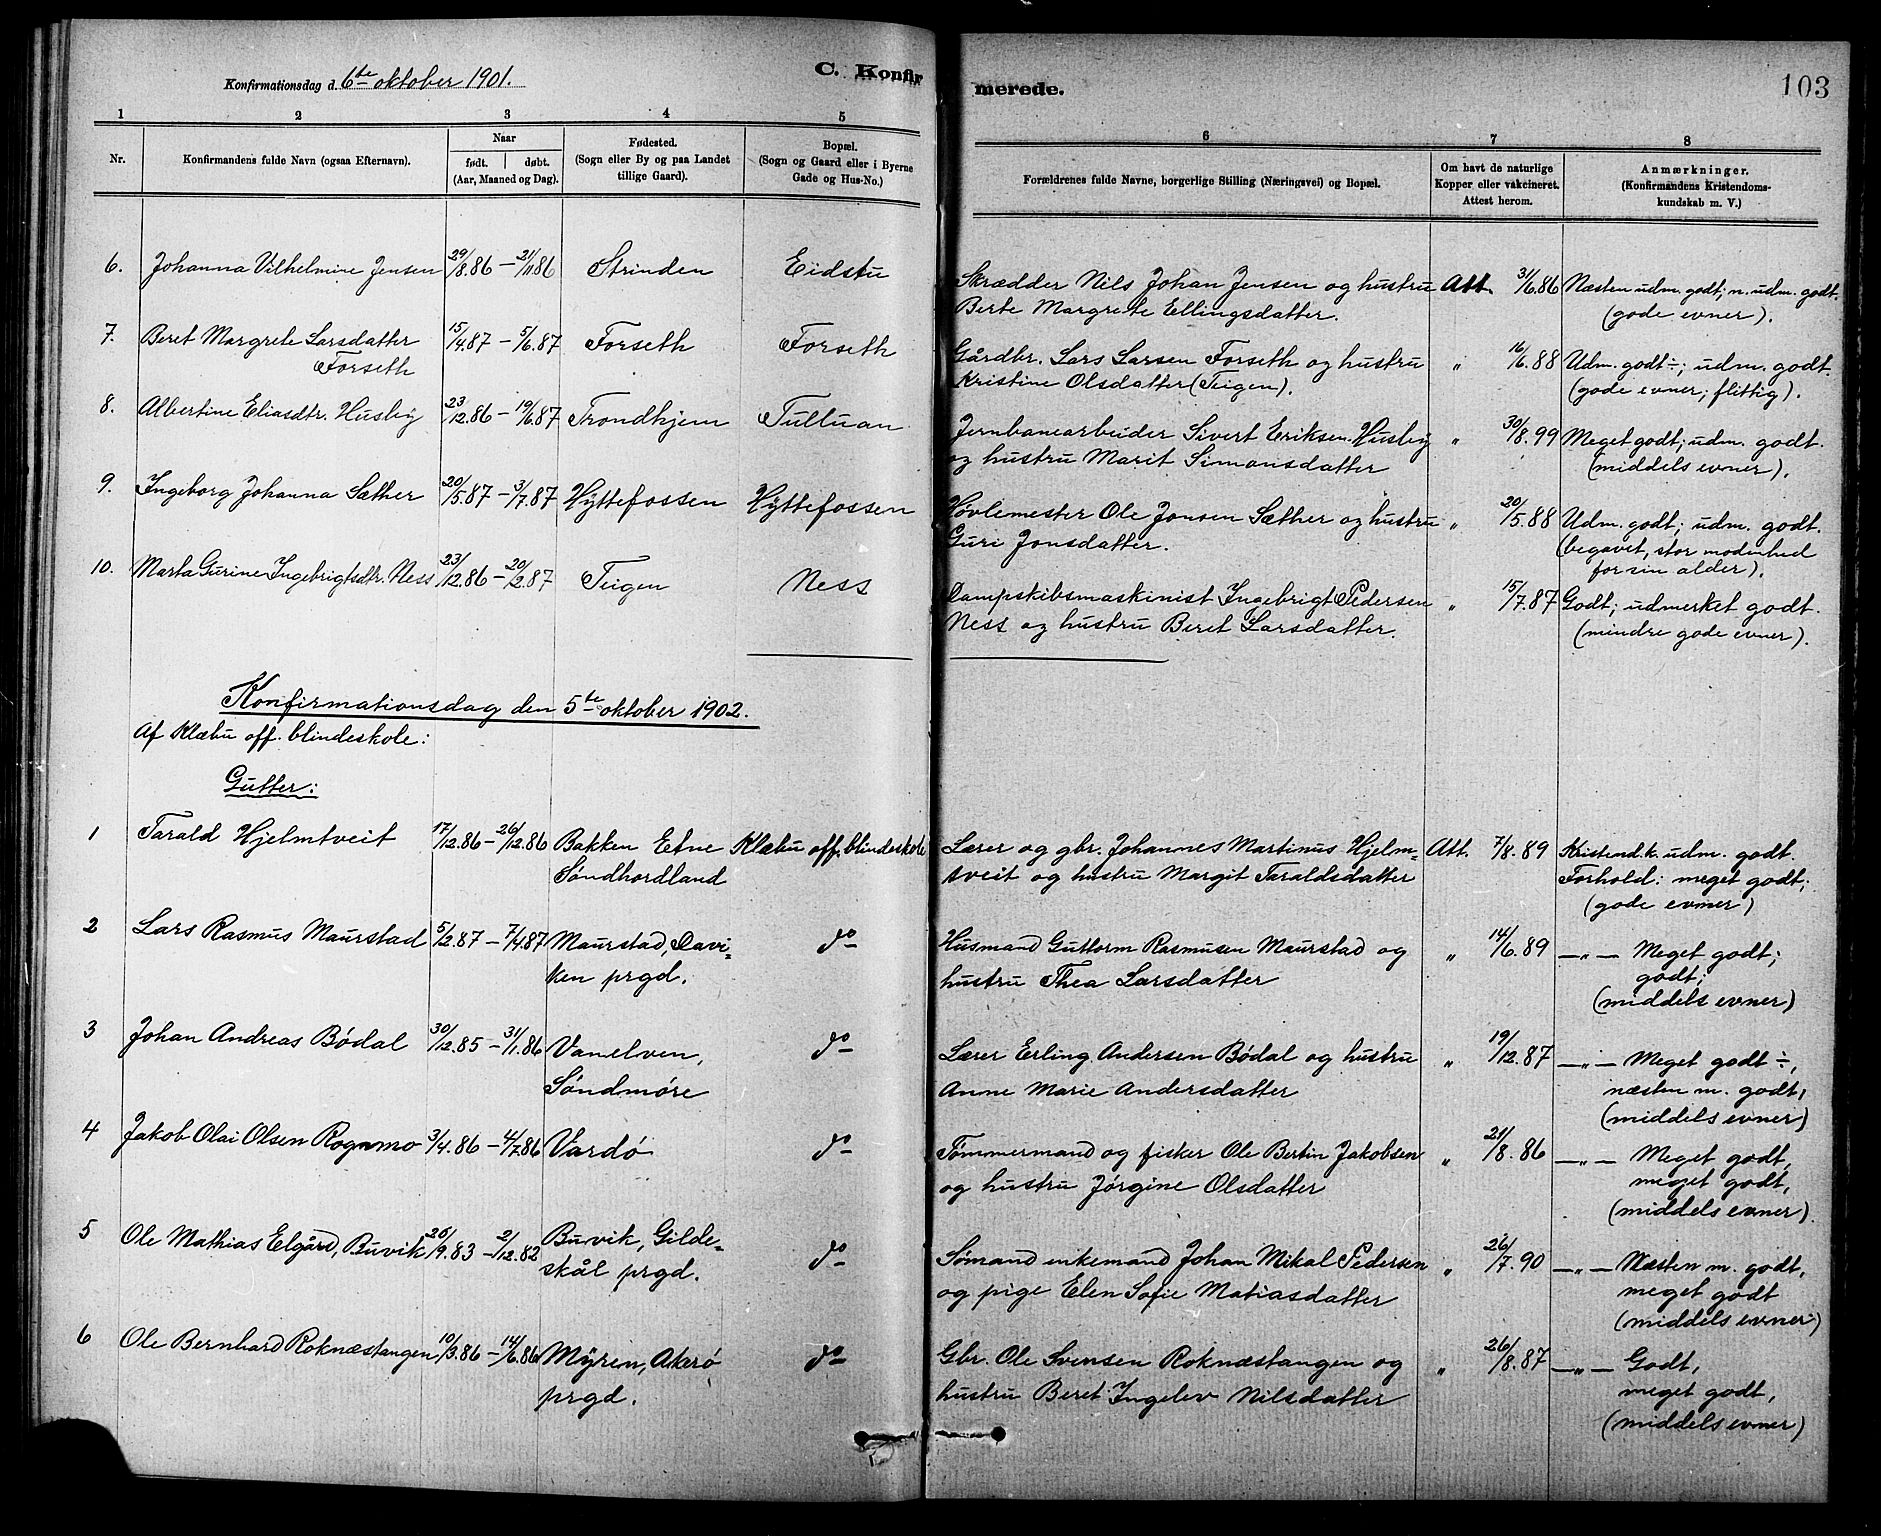 Konfirmationsdag d. 6te oktober 1901.
C. Konfirmerede.
103
1 2 3 4 5 6 7 8
Nr.
Konfirmandens fulde Navn (ogsaa Efternavn).
Naar
født. døbt.
(Aar, Maaned og Dag).
Fødested.
(Sogn eller By og paa Landet
tillige Gaard).
Bopæl.
(Sogn og Gaard eller i Byerne
Gade og Hus-No.)
Forældrenes fulde Navne, borgerlige Stilling (Næringsvei) og Bopæl.
Om havt de naturlige
Kopper eller vakcineret.
Attest herom.
Anmærkninger.
(Konfirmandens Kristendoms-
kundskab m. V.)
6. Johanna Vilhelmine Jensen 29/8.86 – 21/11.86 Strinden Eidstu Skrædder Nils Johan Jensen og hustru Att. 31/6.86 Næsten udm. godt; n. udm. godt.
Berte Margrete Ellingsdatter. (gode evner).
7. Beret Margrete Larsdatter 15/4.87 – 5/6.87 Forseth Forseth Gårdbr. Lars Larsen Forseth og hustru " 16/6.88 Udm. godt ÷; udm. godt.
Forseth Kristine Olsdatter (Teigen). (gode evner; flittig).
8. Albertine Eliasdtr. Husby 23/12.86 – 19/6.87 Trondhjem Tulluan Jernbanearbeider Sivert Eriksen Husby " 30/8.99 Meget godt; udm. godt.
og hustru Marit Simonsdatter (middels evner).
9. Ingeborg Johanna Sæther 20/5.87 – 3/7.87 Hyttefossen Hyttefossen Høvlemester Ole Jonsen Sæther og hustru " 20/5.88 Udm. godt; udm. godt.
Guri Jonsdatter. (begavet, stor modenhed
for sin alder).
10. Marta Gurine Ingebrigtsdtr. Ness 23/12.86 – 20/2.87 Teigen Ness Dampskibsmaskinist Ingebrigt Pedersen " 15/7.87 Godt; udmerket godt.
Ness og hustru Beret Larsdatter. (mindre gode evner).
Konfirmationsdag den 5te oktober 1902.
Af Klæbu off. blindeskole:
Gutter:
1 Tarald Hjelmtveit 17/12.86 – 26/12.86 Bakken Etne Klæbu off. blindeskole Lærer og gbr. Johannes Martinus Hjelm- Att. 7/8.89 Kristend.k. udm. godt.
Søndhordland tveit og hustru Margit Taraldsdatter Forhold: meget godt;
(gode evner)
2 Lars Rasmus Maurstad 5/2.87 – 7/4.87 Maurstad, Davi- do Husmand Guttorm Rasmusen Maurstad og " 14/6.89 — " — Meget godt;
ken prgd. hustru Thea Larsdatter godt;
(middels evner)
3 Johan Andreas Bødal 30/12.85 – 31/1.86 Vanelven, do Lærer Erling Andersen Bødal og hustru " 19/12.87 — " — Meget godt ÷,
Søndmøre Anne Marie Andersdatter næsten m. godt,
(middels evner)
4 Jakob Olai Olsen Rognmo 3/4.86 – 4/7.86 Vardø do Tømmermand og fisker Ole Bertin Jakobsen " 21/8.86 — " — Meget godt,
og hustru Jørgine Olsdatter meget godt,
(middels evner).
5 Ole Mathias Elgård, Buvik 26/9.83 – 2/12.82 Buvik, Gilde- do Sømand enkemand Johan Mikal Pedersen " 26/7.90 — " — Næsten m. godt,
skål prgd. og pige Elen Sofie Matiasdatter meget godt
(middels evner)
6 Ole Bernhard Roknæstangen 10/3.86 – 14/6.86 Myren, Akerø do Gbr. Ole Svensen Roknæstangen og " 26/8.87 — " — Godt,
prgd. hustru Beret Ingelev Nilsdatter meget godt,
(middels evner)